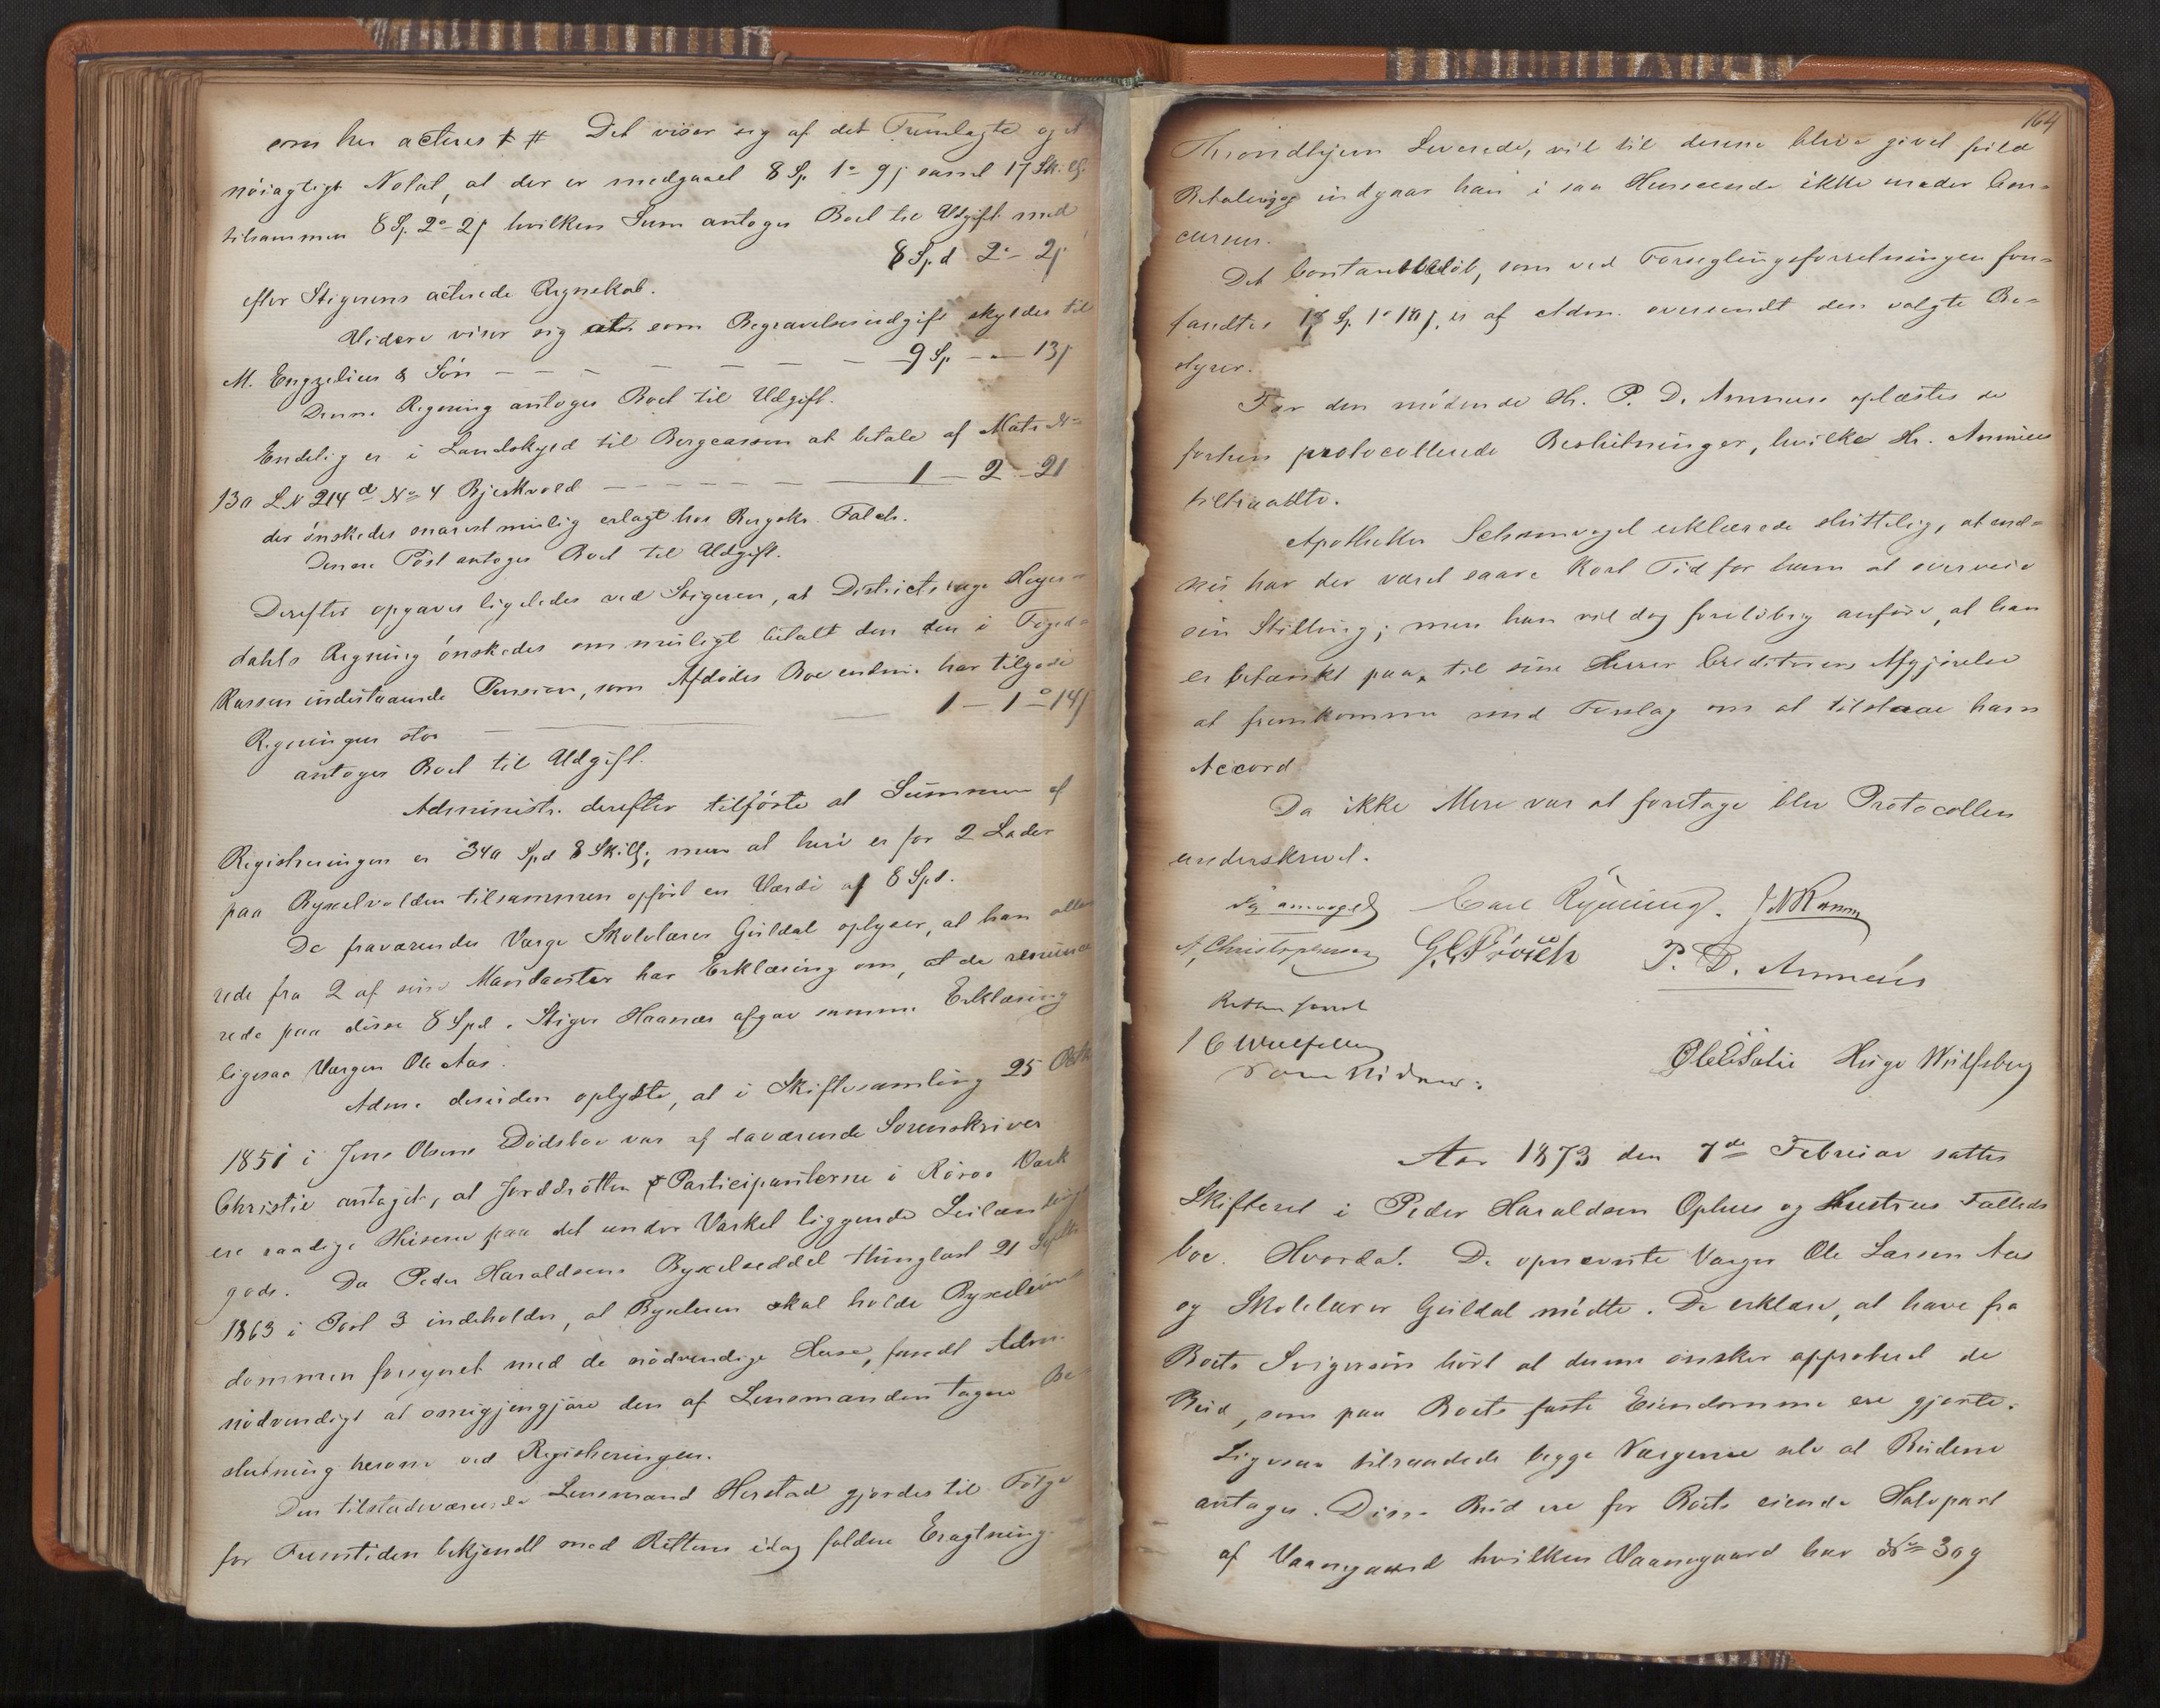 som her acteres # Det viser sig af det Fremlagte og et
nöiagtigt Notat, at der er medgaaet 8 Sp. 1 - 9 s samt 17 Sk.
tilsammen 8 Sp. 2 - 2 s hvilken Sum antoges Boet til Udgift med
8 Spd 2 - 2 s
efter Stigerens acterede Regnskab.
Videre viser sig at som Begravelsesudgift skyldes til
M. Engzelius & Sön - - - - - - 9 Sp - - 13 s
Denne Regning antoges Boet til Udgift.
Endelig er i Landskyld til Bergcassen at betale af Mat. No
130 L N 214 d No 4 Bjerkvold - - - - 1 - 2 - 21
der önskedes snarest mulig erlagt hos Bergsk. Falch.
Denne Post antoges Boet til Udgift.
Derefter opgaves ligeledes ved Stigeren, at Districtslæge Heyer-
dahls Regning önskedes om muligt betalt den den i Foged-
Kassen indestaaende Pension, som Afdödes Boe endnu har tilgode
Regningen stor - - - 1 - 1 - 14 s
antoges Boet til Udgift.
Administr. derefter tilförte at Summen af
Registreringen er 340 Spd 8 Skill; men at heri er for 2 Lader
paa Bygselvolden tilsammen opfört en Værdi af 8 Spd.
De fraværendes Værge Skolelærer Guldal oplyser, at han alle-
rede fra 2 af sine Mandanter har Erklæring om, at de renunce-
rede paa disse 8 Spd. Stiger Haanæs afgav samme Erklæring
ligesaa Værgen Ole Aas.
Adm. desuden oplyste, at i Skiftesamling 25 Octb
1851 i Jens Olsens Dödsboe var af daværende Sorenskriver
Christie antaget, at Jorddrotten Participanterne i Röros Værk
ere raadige Husene paa det under Værket liggende Leilændings
gods. Da Peder Haraldsens Bygselseddel thinglæst 21 Septb
1863 i Post 3 indeholder, at Bygsleren skal holde Bygseleien-
dommen forsynet med de nödvendige Huse, fandt Adm.
nödvendigt at omigjengjöre den af Lensmanden tagne Be-
slutning herom ved Registreringen.
Den tilstedeværende Lensmand Herstad gjordes til Fölge
for Fremtiden bekjendt med Rettens idag faldne Eragtning.
164
Throndhjem Leverede, vil til denne blive givet fuld
Betaling og indgaar han i saa Henseende ikke under Con-
cursen.
Det Contantbelöb, som ved Forseglingsforretningen fore-
fandtes 17 Sp. 1 18 s. er af Adm. oversendt den valgte Be-
styrer.
For den mödende Hr. P. D. Annæus oplæstes de
forhen protocollerede Beslutninger, hvilke Hr. Annæus
tiltraadte.
Apotheker Schamvogel erklærede sluttelig, at end-
nu har der været saare kort Tid for ham at overveie
sin Stilling; men han vil dog foreløbig anföre, at han
er betænkt paa, til sine Herrer Creditorers Afgjörelse
at fremkomme med Forslag om at tilstaae ham
Accord
Da ikke Mere var at foretage blev Protocollen
underskrevet.
Schamvogel Carl Ryning. J N Ramm
A, Christophersen G. C. P. D. Annæus
Retten hævet
C Wulfsberg
Som Vidner: Ole Hugo Wulfsberg
Aar 1873 den 7de Februar sattes
Skifteret i Peder Haraldsen Ophus og Hustrus Fælleds
boe. Hvorda! De opnævnte Værger Ole Larsen Aas
og Skolelærer Guldal mödte. De erklære, at have fra
Boets Svigersön hört at denne önsker approberet de
Bud, som paa Boets faste Eiendomme ere gjorte.
Ligesaa tilraadede begge Værgerne selv at Budene
antages. Disse Bud ere for Boets eiende Halvpart
af Vaanegaard hvilken Vaanegaard har No 309